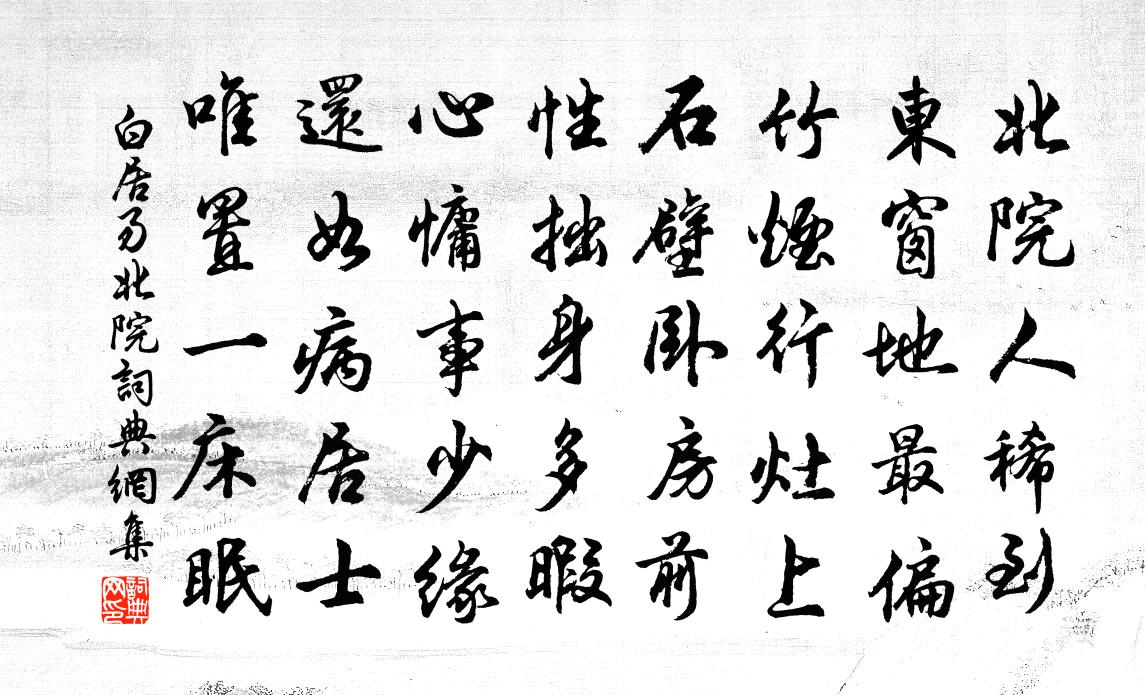 北院人稀到
東窗地最偏
竹煙行灶上
石壁卧房前
性拙身多暇
心慵事少緣
還如病居士
唯置一床眠
白居易北院詞典網集
詞典网印